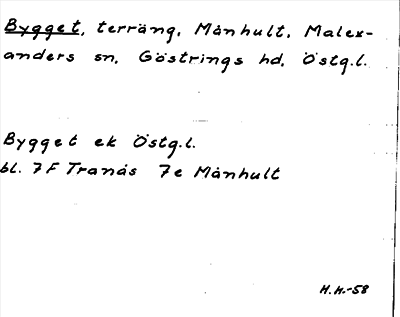 Bygget, terräng, Månhult, Malex-
anders sn, Göstrings hd, Östg.l.
Bygget ek Östg.l.
bl. 7F Tranås 7e Månhult
H.H.-58